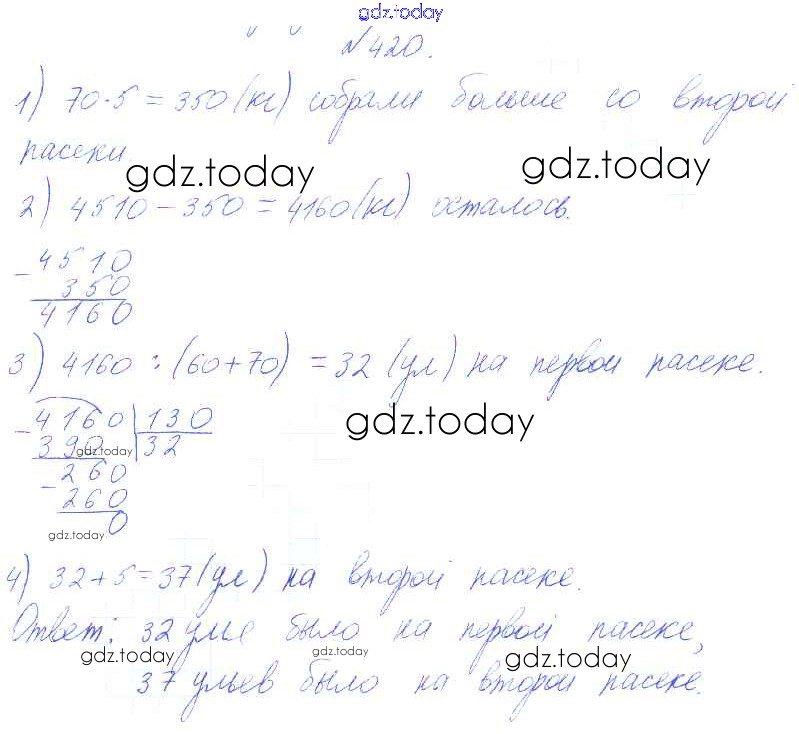 gdz.today
№420.
1) 70·5=350(кг) собрали больше со второй
пасеки.
gdz.today gdz.today
2) 4510-350=4160(кг) осталось.
-4510
350
4160
3) 4160:(60+70)=32(ул) на первой пасеке.
-4160 130
390 32
gdz.today gdz.today
-260
260
0
gdz.today
4) 32+5=37(ул) на второй пасеке.
Ответ: 32 улье было на первой пасеке,
gdz.today gdz.today gdz.today
37 ульев было на второй пасеке.